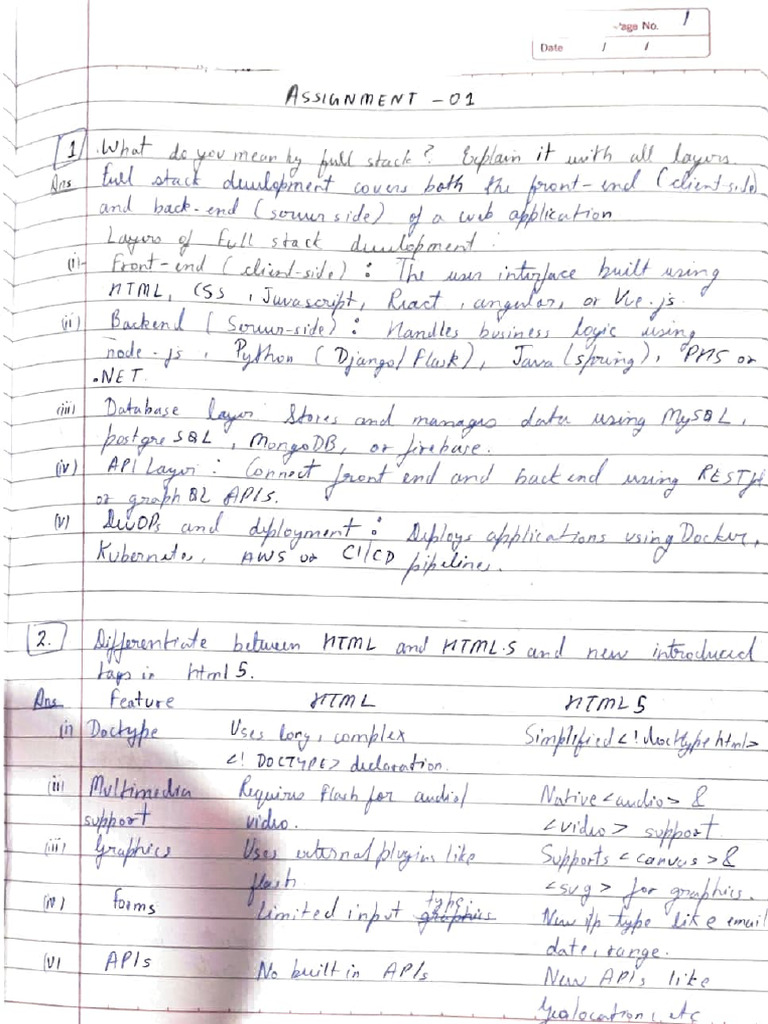 Page No. 1
Date / /
ASSIGNMENT - 01
1 What do you mean by full stack? Explain it with all layers.
Ans Full stack development covers both the front-end (client-side)
and back-end (server side) of a web application
Layers of Full stack development :
(i)- Front-end (client-side) : The user interface built using
HTML, CSS, Javascript, React, angular, or Vue.js.
(ii) Backend (Server-side) : Handles business logic using
node.js, Python (Django/Flask), Java (spring), or
.NET.
(iii) Database layer Stores and manages data using MySQL,
postgre SQL, MongoDB, or firebase.
(iv) API Layer : Connect front end and back end using
or graph QL APIs.
(v) DevOPs and deployment : Deploys applications using Docker,
Kubernetes, AWS or CI/CD pipelines.
2. Differentiate between HTML and HTML5 and new introduced
tags in html 5.
Ans Feature HTML HTML 5
(i) Doctype Uses long, complex Simplified <!doctype html>
<! DOCTYPE> declaration.
(ii) Multimedia Requires Flash for audio/ Native <audio> &
support video. <video> support.
(iii) Graphics Uses external plugins like Supports <canvas> &
flash <svg> for graphics.
(iv) Forms Limited input type New i/p type like email
date, range.
(v) APIs No built in APIs New APIs like
Geolocation, etc